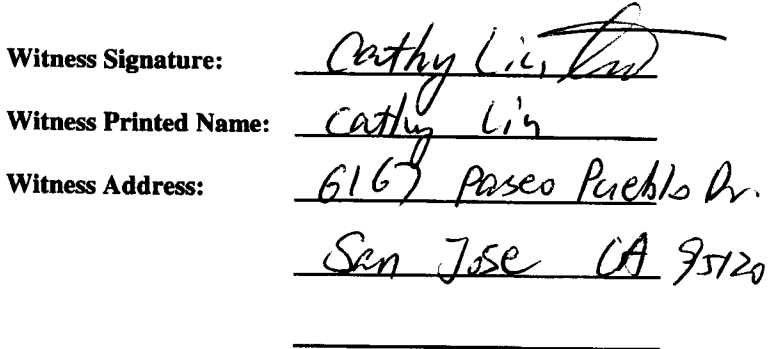 Witness Signature: Cathy Lin
Witness Printed Name: Cathy Lin
Witness Address: 6167 Paseo Pueblo Dr.
San Jose CA 95120